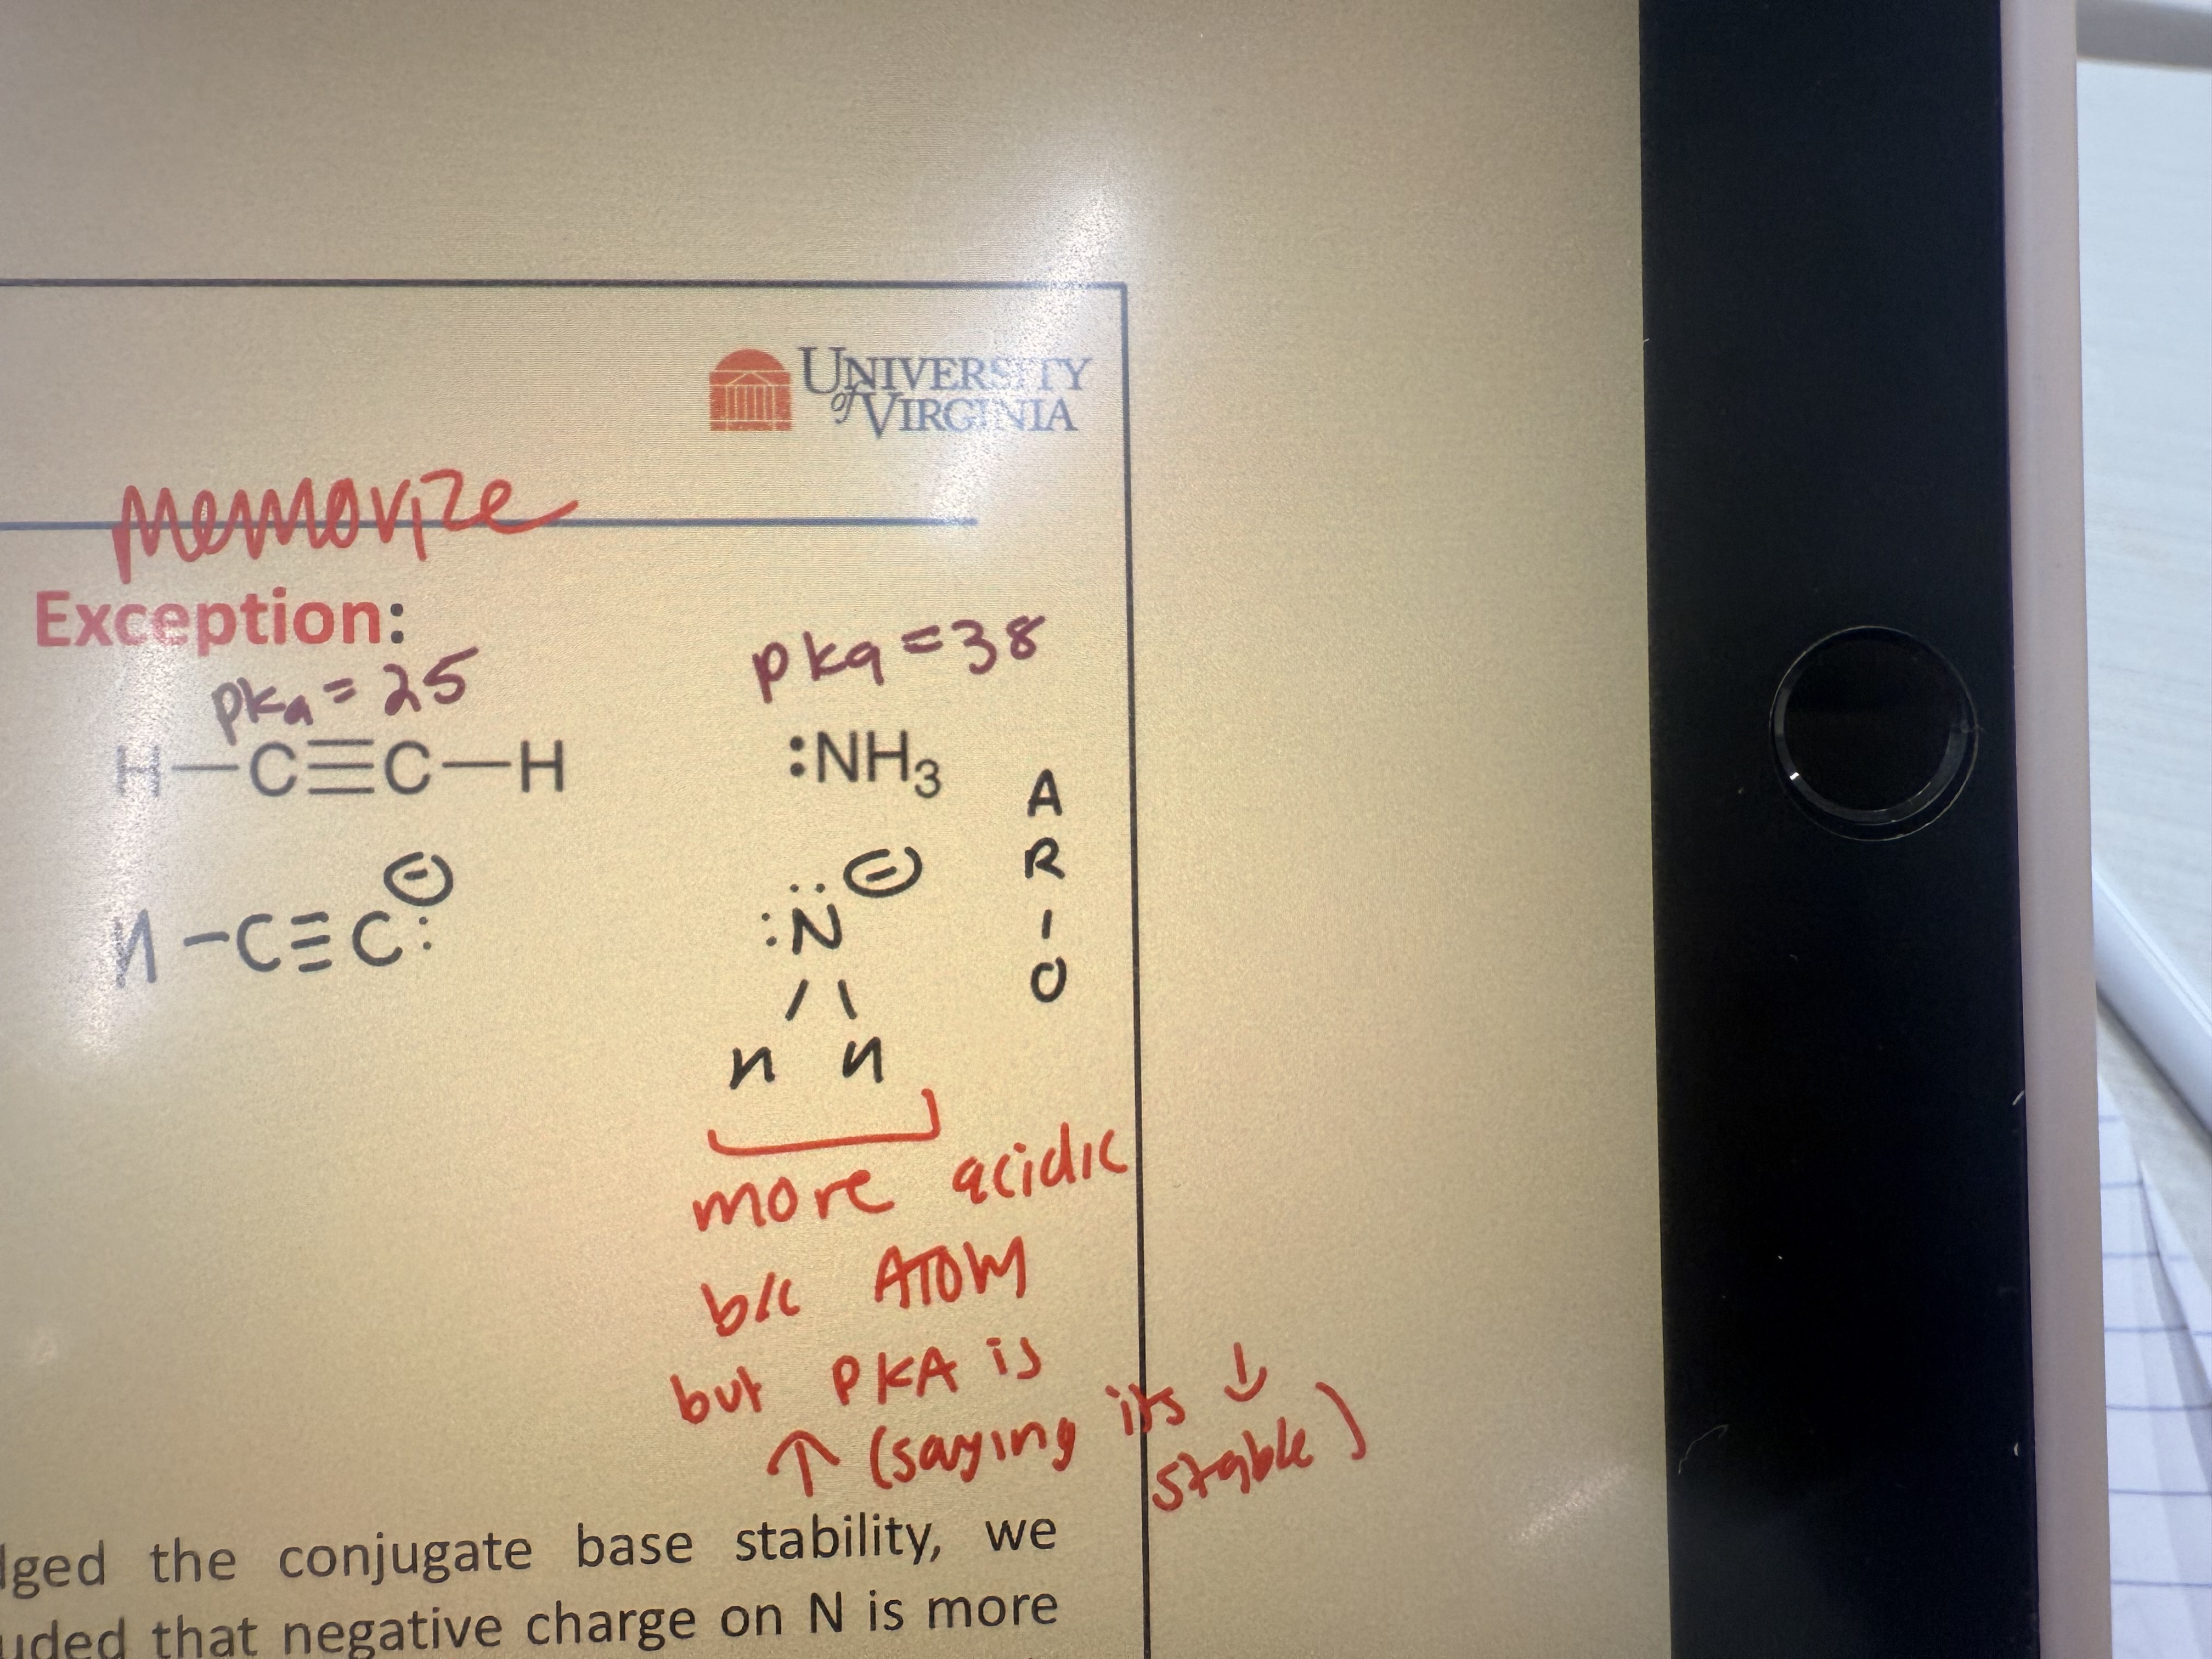 UNIVERSITY
of VIRGINIA
Memorize
Exception:
pka = 25
pka = 38
H—C≡C—H
:NH3
A
R
I
O
H-C≡C:⊖
:N̈⊖
/ \
H H
more acidic
b/c ATOM
but PKA is
↑ (saying its ↓
stable)
dged the conjugate base stability, we
uded that negative charge on N is more